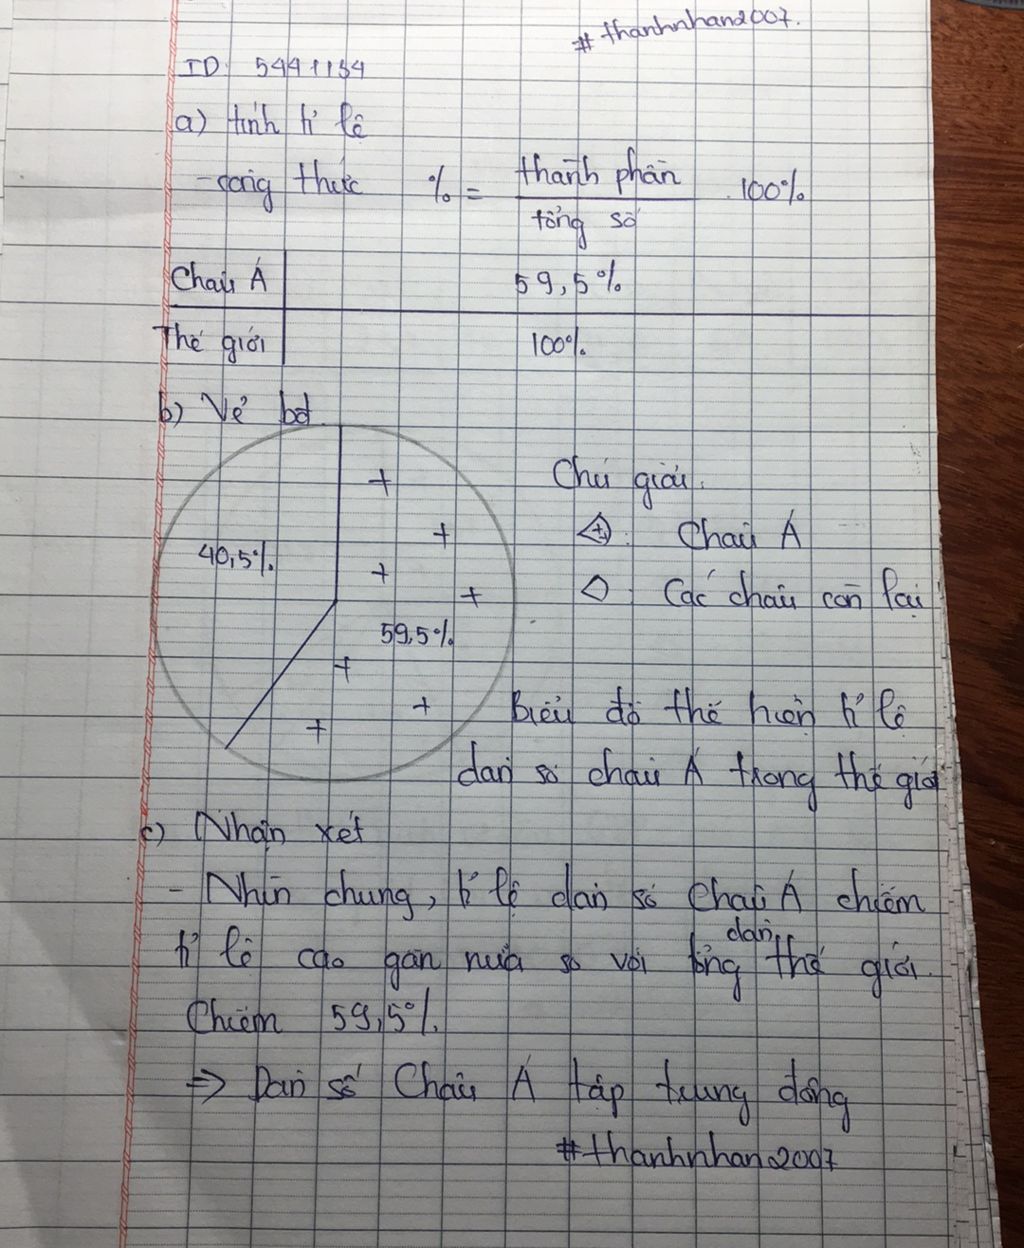 #thanhnhan2007.
ID: 5441154
a) tính tỉ lệ
- công thức % = thành phần / tổng số . 100%
Châu Á 59,5%
Thế giới 100%
b) Vẽ bđ
40,5%
59,5%
Chú giải.
Châu Á
Các châu còn lại
Biểu đồ thể hiện tỉ lệ
dân số châu Á trong thế giới
c) Nhận xét
- Nhìn chung, tỉ lệ dân số Châu Á chiếm
tỉ lệ cao gần nửa so với tổng dân thế giới.
Chiếm 59,5%.
=> Dân số Châu Á tập trung đông
#thanhnhan2007